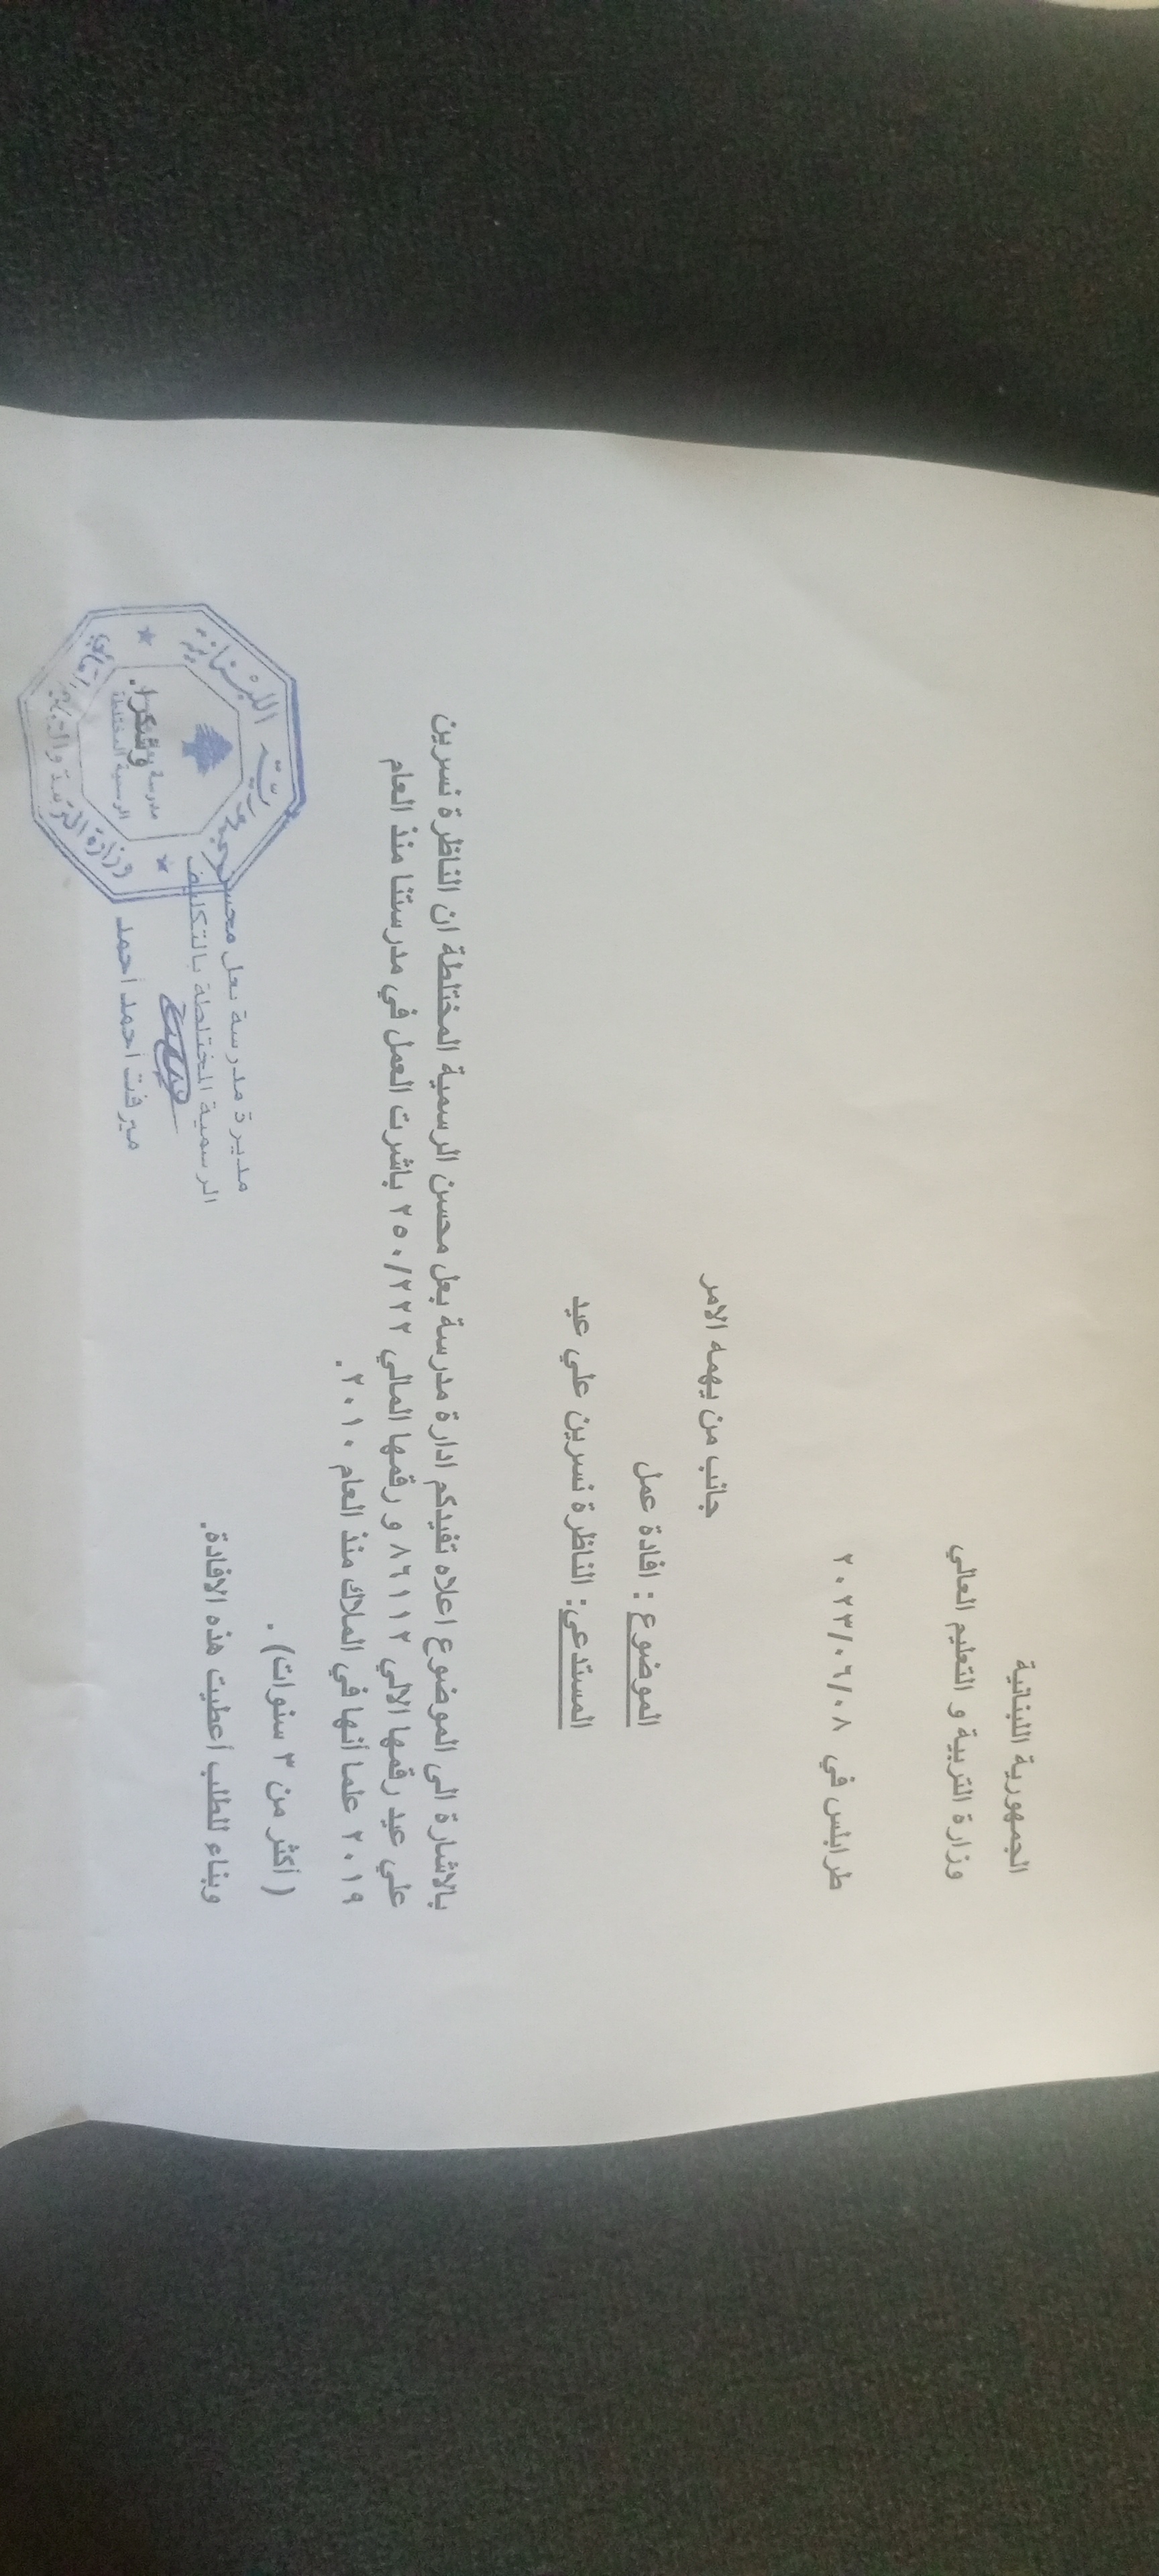 الجمهورية اللبنانية
وزارة التربية و التعليم العالي
طرابلس في ٢٠٢٣/٠٦/٠٨
جانب من يهمه الامر
الموضوع : افادة عمل
المستدعي: الناظرة نسرين علي عيد
بالاشارة الى الموضوع اعلاه تفيدكم ادارة مدرسة بعل محسن الرسمية المختلطة ان الناظرة نسرين
علي عيد رقمها الالي ٨٦١١٢ و رقمها المالي ٢٥٠/٢٢٢ باشرت العمل في مدرستنا منذ العام
٢٠١٩ علما أنها في الملاك منذ العام ٢٠١٠.
( أكثر من ٣ سنوات) .
وبناء للطلب أعطيت هذه الافادة.
وشكرا.
مديرة مدرسة بعل محسن
الرسمية المختلطة بالتكليف
ميرفت أحمد أحمد
الجمهورية اللبنانية
وزارة التربية والتعليم العالي
الرسمية المختلطة